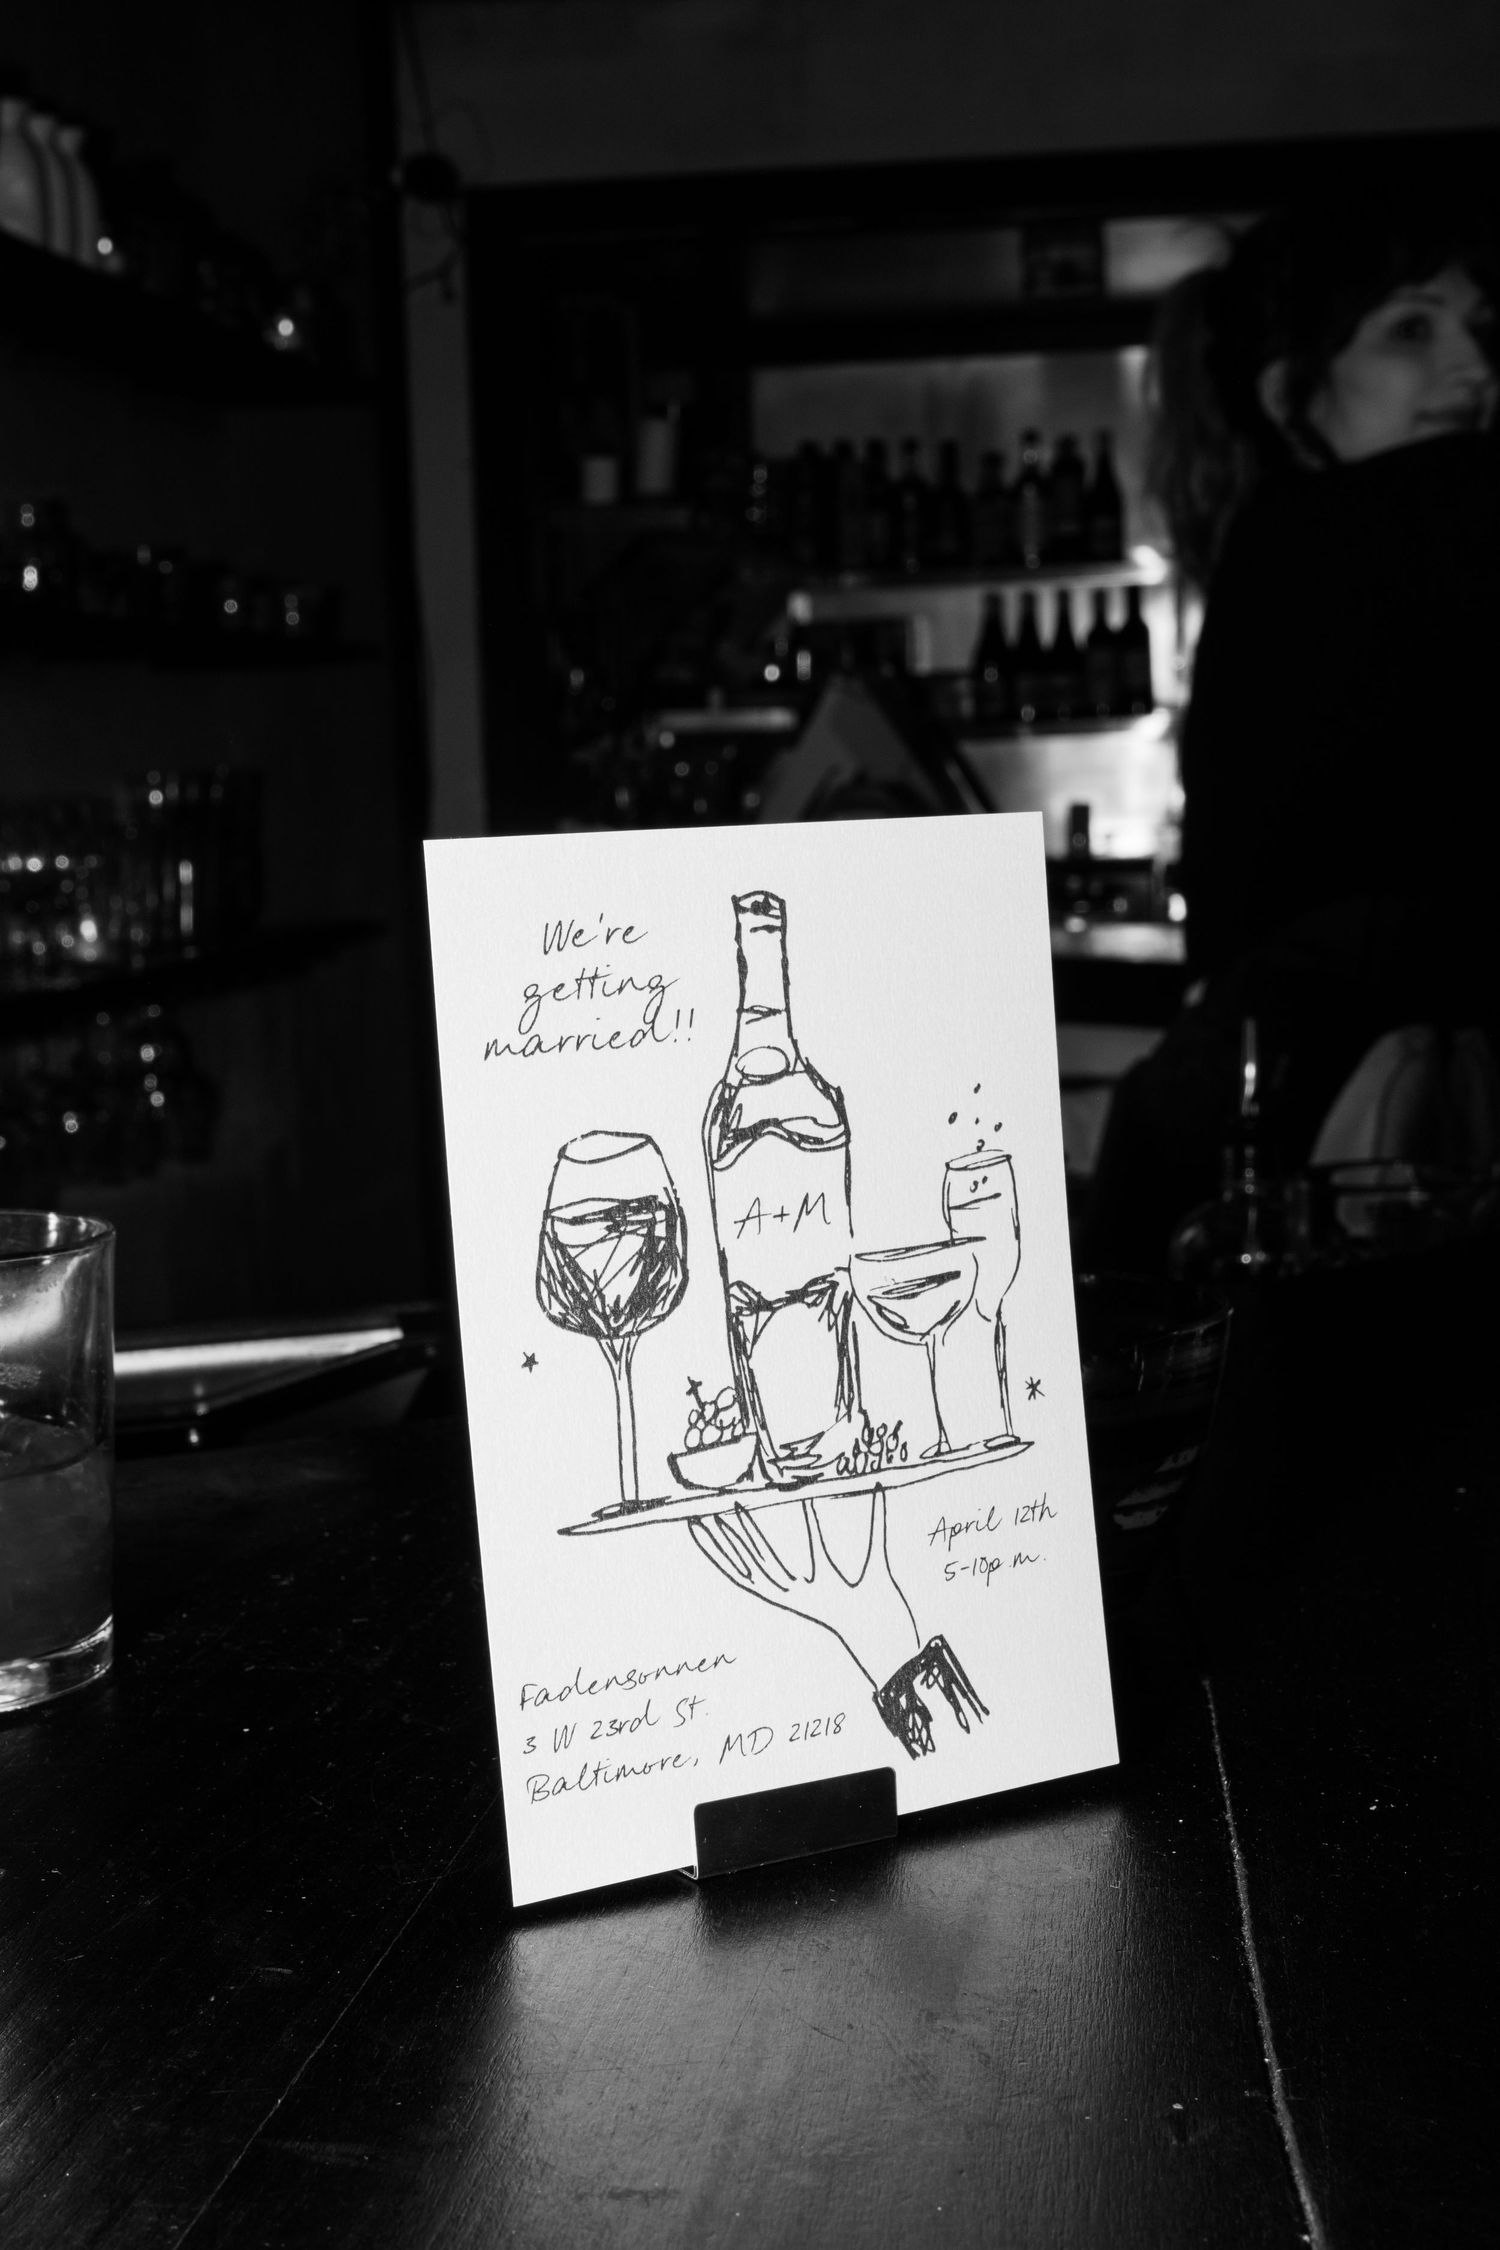 We're
getting
married!!
A+M
April 12th
5-10p.m.
Fadensonnen
3 W 23rd St.
Baltimore, MD 21218